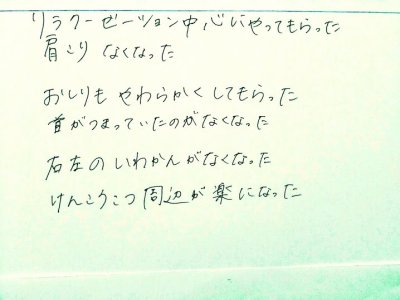 リラクーゼーション中心にやってもらった
肩こり なくなった
おしりも やわらかく してもらった
首がつまっていたのがなくなった
右左の いわかんがなくなった
けんこうこつ 周辺が 楽になった